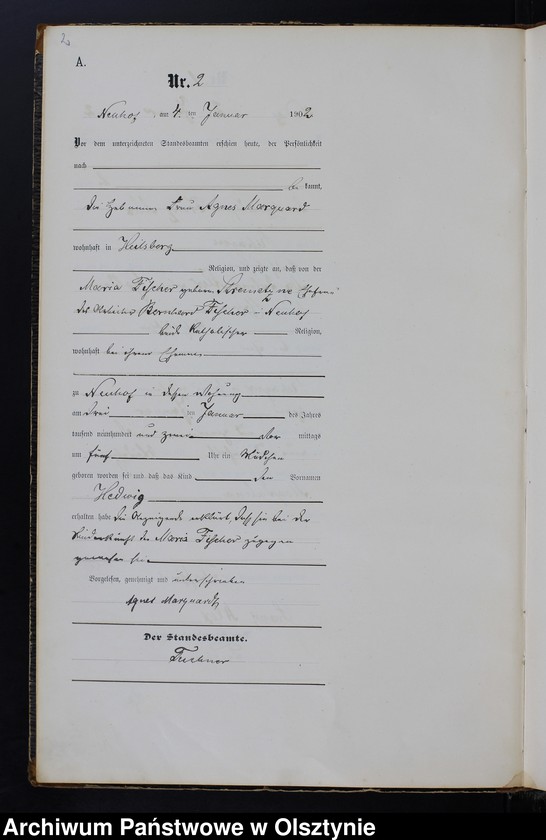 2
A.
Nr. 2
Neuhof, am 4. ten Januar 1902
Vor dem unterzeichneten Standesbeamten erschien heute, der Persönlichkeit
nach
be kannt,
die Hebamme Frau Agnes Marquard
wohnhaft in Heilsberg
Religion, und zeigte an, daß von der
Maria Fischer geborne
des Bernhard Fischer in Neuhof
beide katholischer Religion,
wohnhaft bei ihrem Ehemann
zu Neuhof in dessen Wohnung
am drei ten Januar des Jahres
tausend neunhundert und zwei mittags
um fünf Uhr ein Mädchen
geboren worden sei und daß das Kind den Vornamen
Hedwig
erhalten habe. Die Anzeigende erklärt, daß sie bei der
Niederkunft der Maria Fischer zugegen
gewesen sei
Vorgelesen, genehmigt und unterschrieben
Agnes Marquardt
Der Standesbeamte.
Archiwum Państwowe w Olsztynie